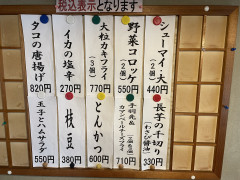 税込表示となります
シューマイ・大
(2個)
440円
野菜コロッケ
(2個)
550円
大粒カキフライ
(3個)
770円
イカの塩辛
270円
タコの唐揚げ
820円
長芋の千切り
(わさび醤油)
330円
カマンベールチーズフライ
710円
とんかつ
600円
枝豆
380円
玉子とハムサラダ
550円